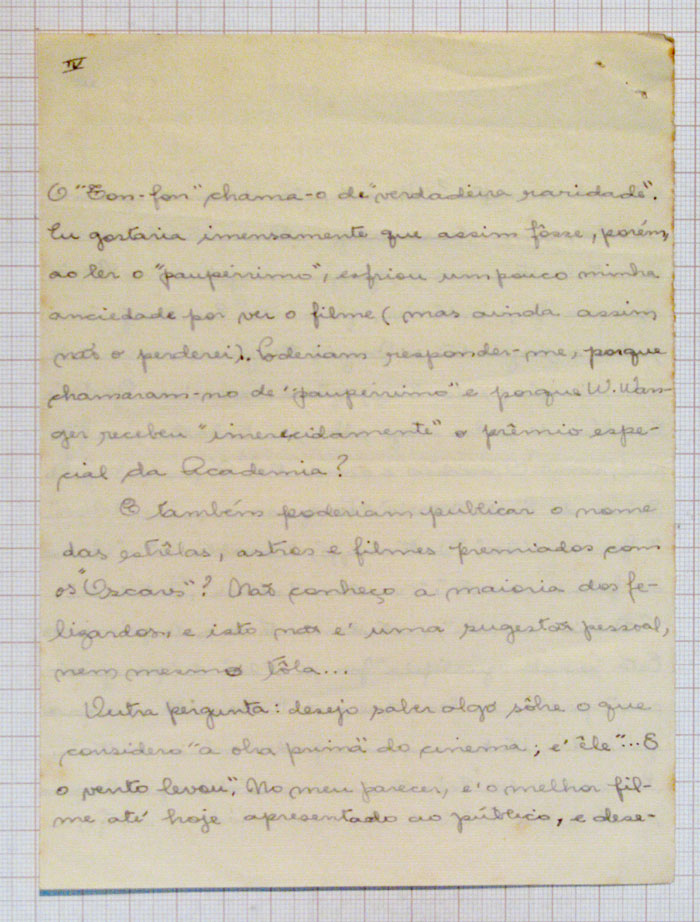 IV
O "Fon-fon" chama-o de "verdadeira raridade".
Eu gostaria imensamente que assim fôsse, porém,
ao ler o "paupérrimo", esfriou um pouco minha
anciedade por ver o filme (mas ainda assim
não o perderei). Poderiam responder-me, porque
chamaram-no de "paupérrimo" e porque W. Wan-
ger recebeu "imerecidamente" o prêmio espe-
cial da Academia?
E também poderiam publicar o nome
das estrêlas, astros e filmes premiados com
os "Oscars"? Não conheço a maioria dos fe-
lizardos, e isto não é uma sugestão pessoal,
nem mesmo tôla...
Outra pergunta: desejo saber algo sôbre o que
considero "a obra prima" do cinema; é êle "...E
o vento levou". No meu parecer, é o melhor fil-
me até hoje apresentado ao público, e dese-